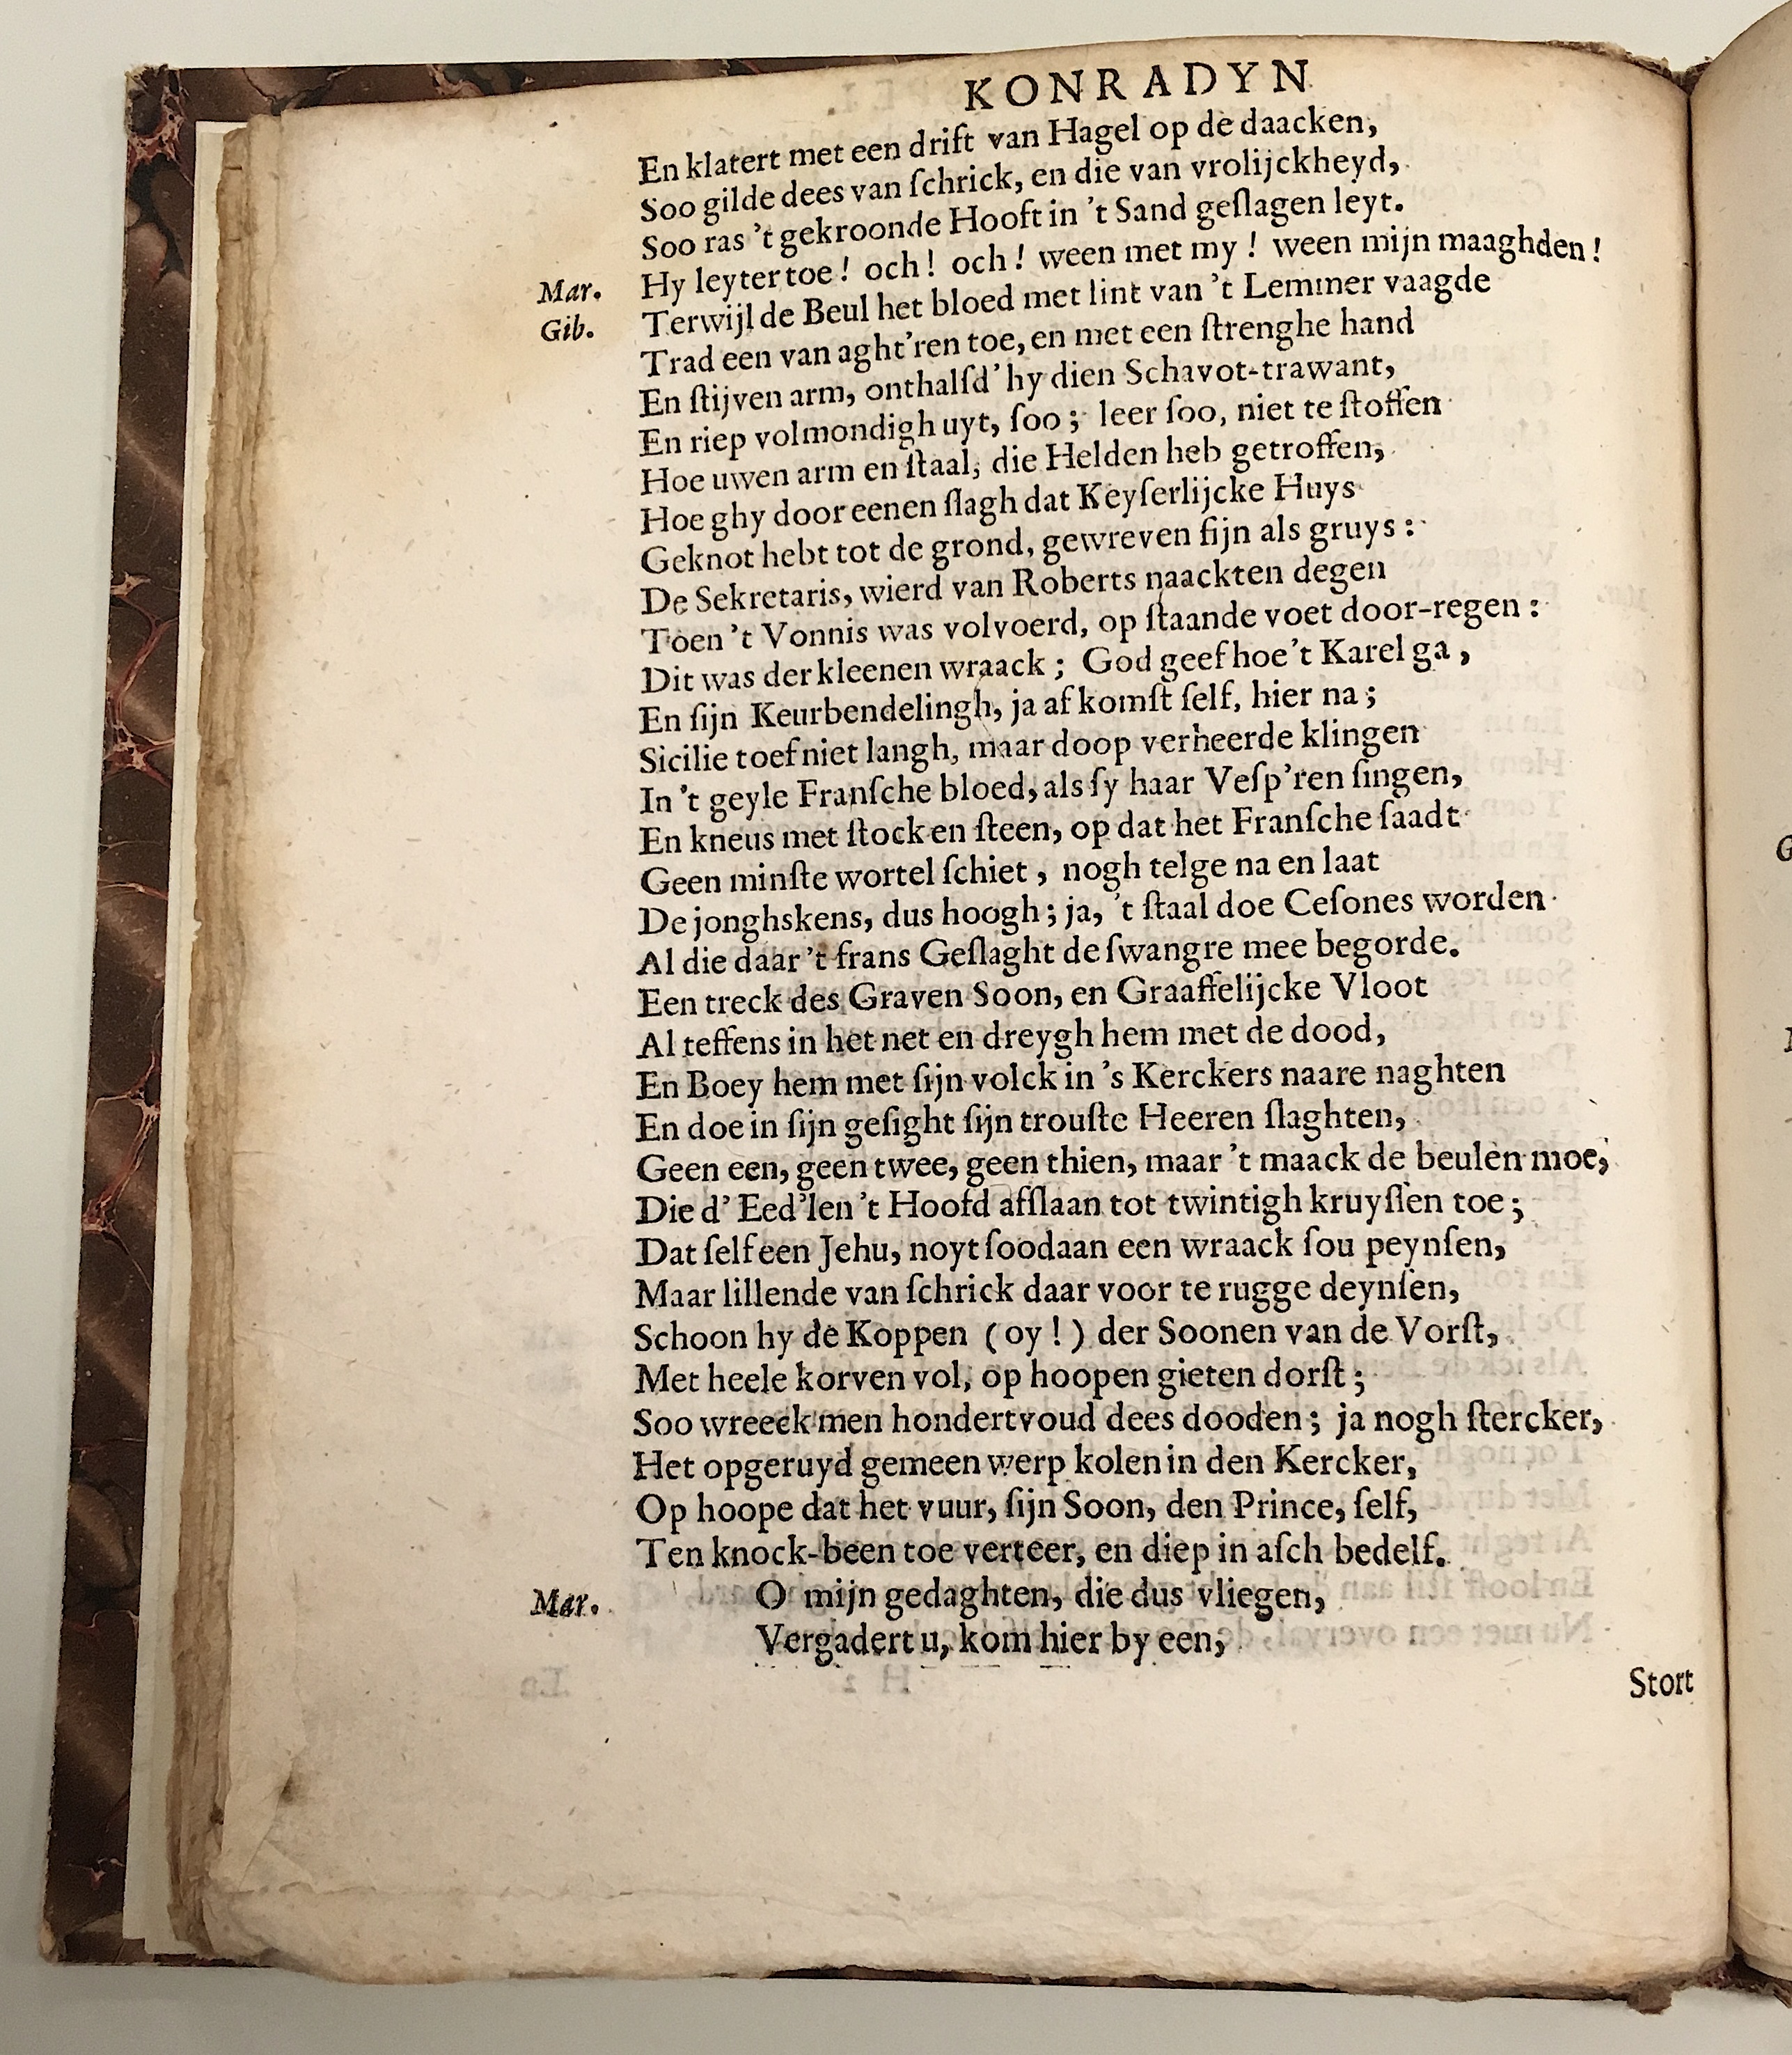 KONRADYN
En klatert met een drift van Hagel op de daacken,
Soo gilde dees van ſchrick, en die van vrolijckheyd,
Soo ras 't gekroonde Hooft in 't Sand geſlagen leyt.
Mar. Hy leyter toe ! och ! och ! ween met my ! ween mijn maaghden !
Gib. Terwijl de Beul het bloed met lint van 't Lemmer vaagde
Trad een van aght'ren toe, en met een ſtrenghe hand
En ſtijven arm, onthalſd' hy dien Schavot-trawant,
En riep volmondigh uyt, ſoo ; leer ſoo, niet te ſtoffen
Hoe uwen arm en ſtaal, die Helden heb getroffen,
Hoe ghy door eenen ſlagh dat Keyſerlijcke Huys
Geknot hebt tot de grond, gewreven ſijn als gruys :
De Sekretaris, wierd van Roberts naackten degen
Toen 't Vonnis was volvoerd, op ſtaande voet door-regen :
Dit was der kleenen wraack ; God geef hoe 't Karel ga ,
En ſijn Keurbendelingh, ja af komſt ſelf, hier na ;
Sicilie toef niet langh, maar doop verheerde klingen
In 't geyle Franſche bloed, als ſy haar Veſp'ren ſingen,
En kneus met ſtock en ſteen, op dat het Franſche ſaadt
Geen minſte wortel ſchiet , nogh telge na en laat
De jonghskens, dus hoogh ; ja, 't ſtaal doe Ceſones worden
Al die daar 't frans Geſlaght de ſwangre mee begorde.
Een treck des Graven Soon, en Graaffelijcke Vloot
Al teffens in het net en dreygh hem met de dood,
En Boey hem met ſijn volck in 's Kerckers naare naghten
En doe in ſijn geſight ſijn trouſte Heeren ſlaghten,
Geen een, geen twee, geen thien, maar 't maack de beulen moe,
Die d' Eed'len 't Hoofd afſlaan tot twintigh kruyſſen toe ;
Dat ſelf een Jehu, noyt ſoodaan een wraack ſou peynſen,
Maar lillende van ſchrick daar voor te rugge deynſen,
Schoon hy de Koppen ( oy ! ) der Soonen van de Vorſt,
Met heele korven vol, op hoopen gieten dorſt ;
Soo wreeck men hondertvoud dees dooden ; ja nogh ſtercker,
Het opgeruyd gemeen werp kolen in den Kercker,
Op hoope dat het vuur, ſijn Soon, den Prince, ſelf,
Ten knock-been toe verteer, en diep in aſch bedelf.
Mar. O mijn gedaghten, die dus vliegen,
Vergadert u, kom hier by een,
Stort